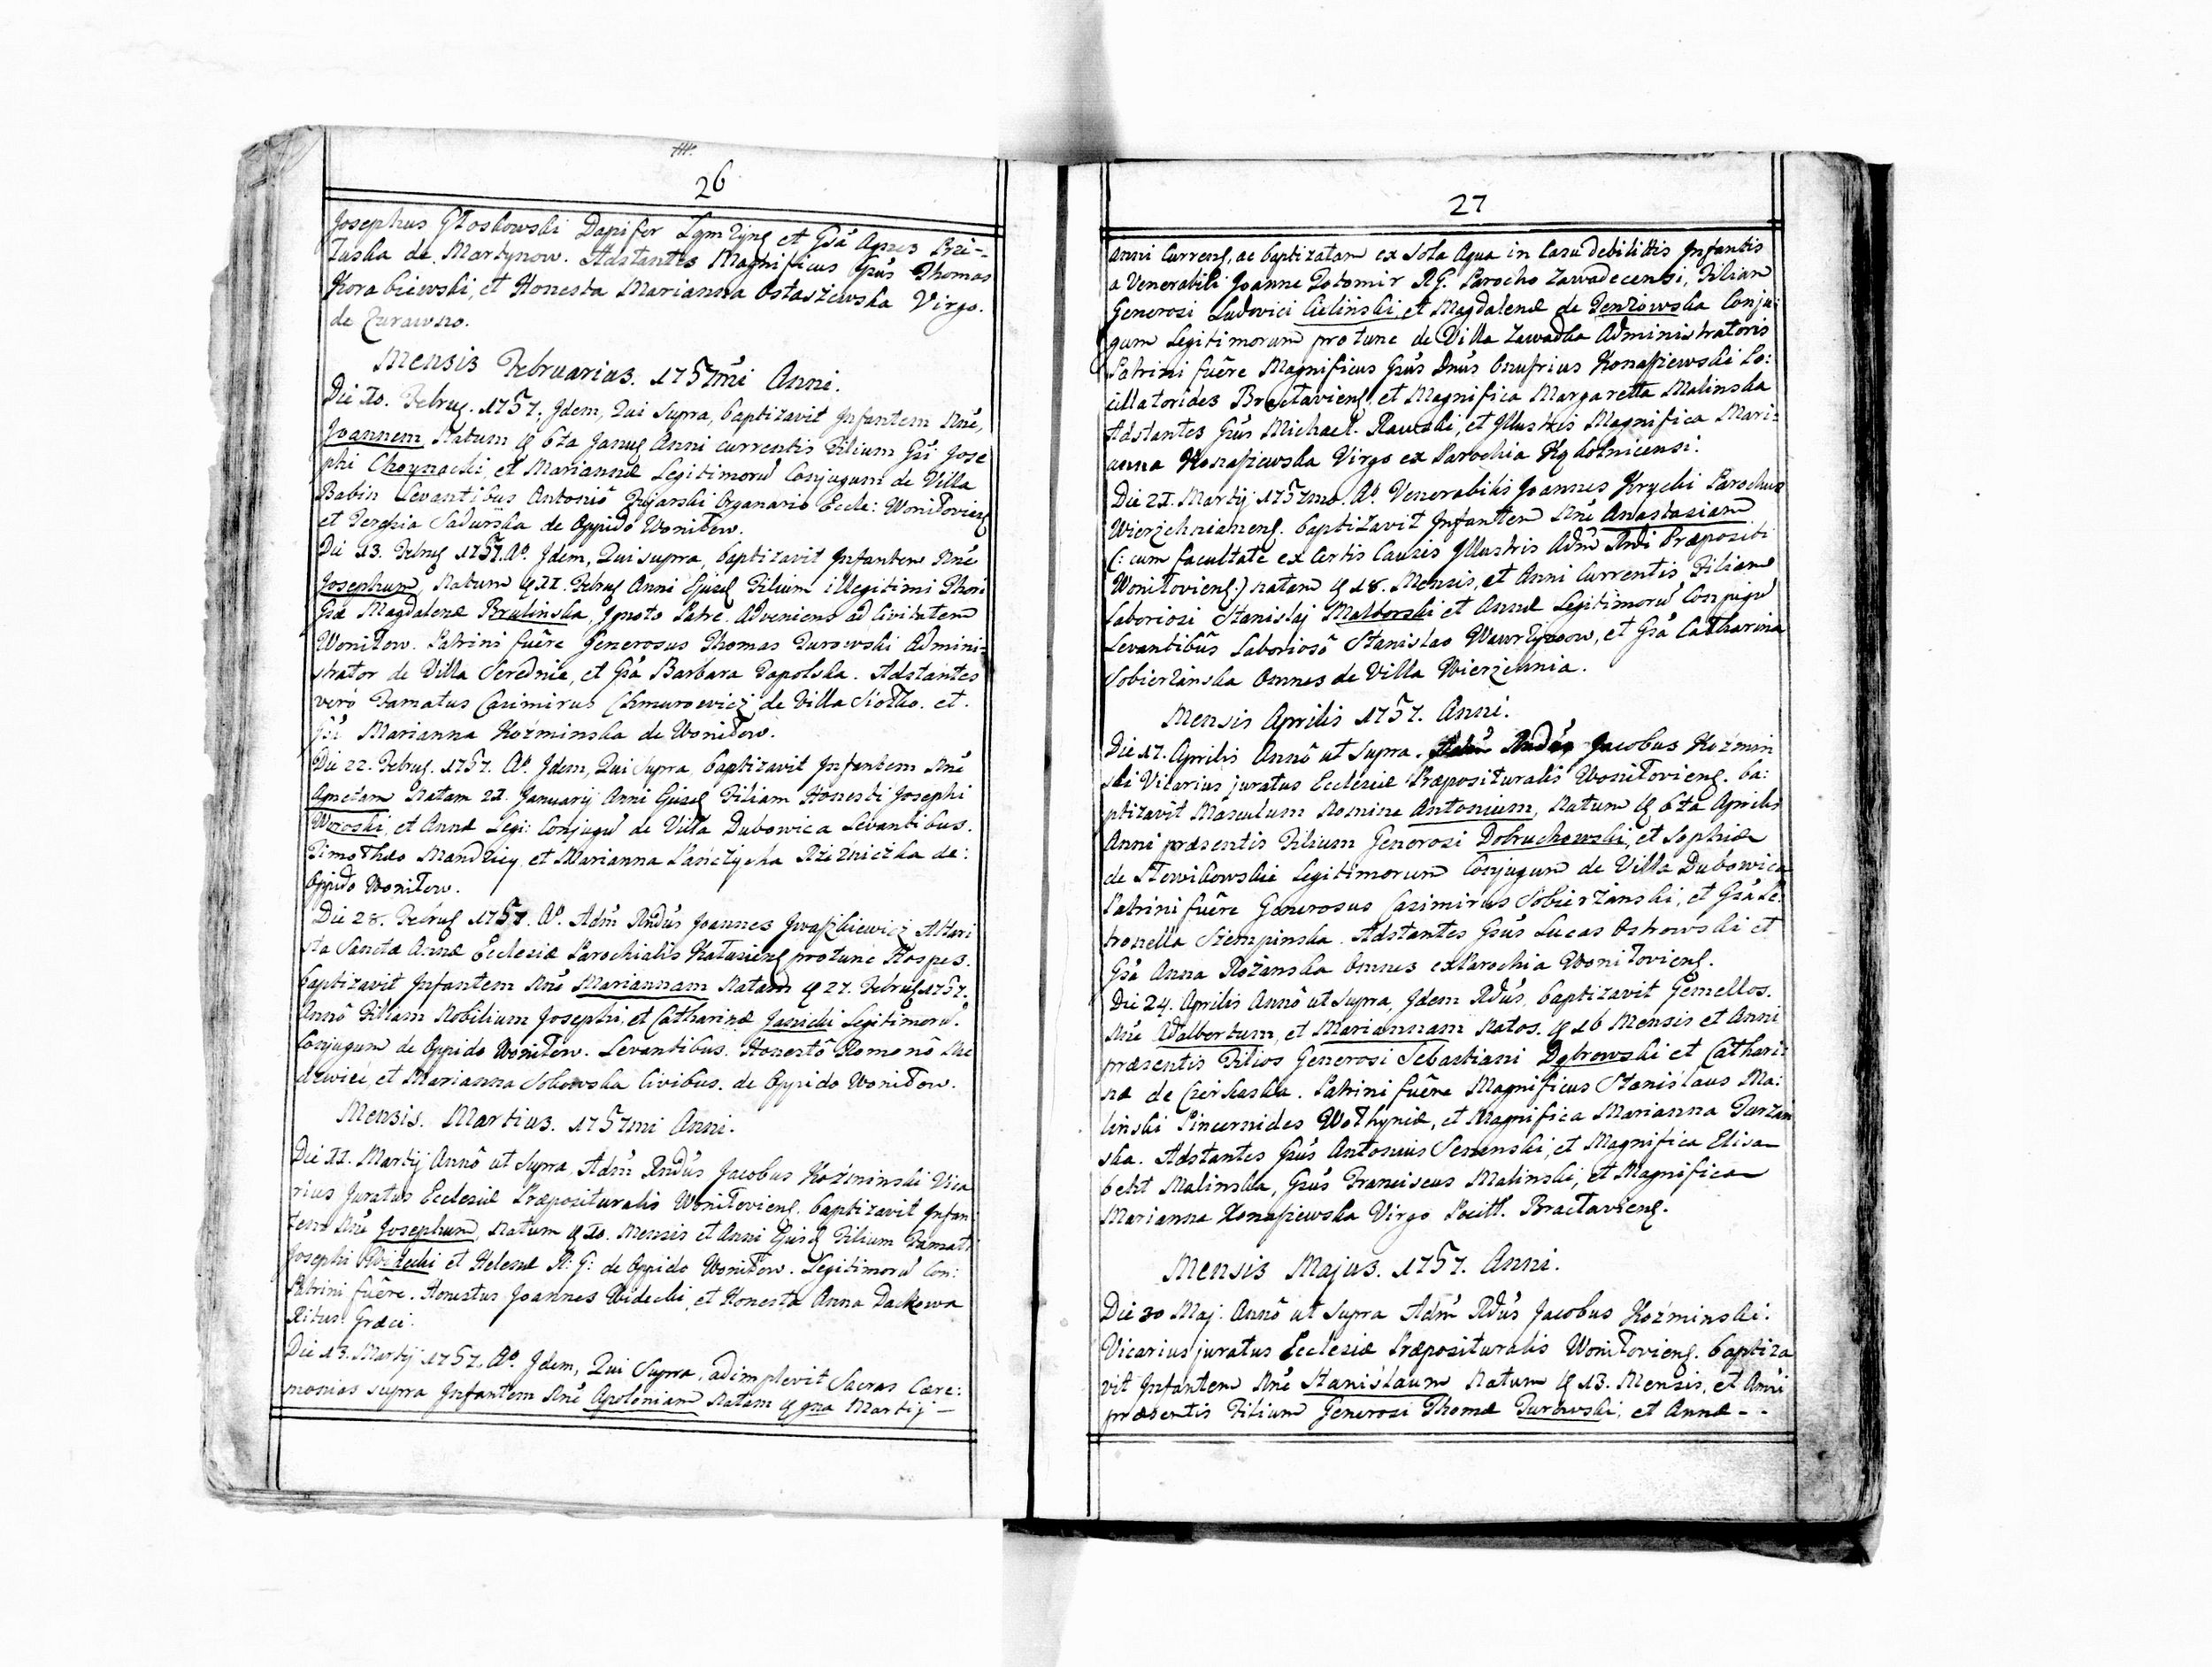 26
Josephus Głoskowski Dapifer et Gsa Agnes Bzi-
de Martynow. Adstantes Magnificus Gsus Thomas
Korabiewski, et Honesta Marianna Ostaszewska Virgo.
de Zurawno.
Mensis Februarius. 1757mi Anni.
Die 10. Febrʒ. 1757. Idem, Qui Supra, baptizavit Infantem Nne,
Joannem, Natum 6ta Janʒ Anni currentis Filium Gsi Jose
phi Choynacki, et Mariannæ Legitimorū Conjugum de Villa
Babin Levantibus Antoniô Organario Eccle: Woniłovienʒ
et Sadurska de Oppido Woniłow.
Die 13. Febrʒ 1757. Ao. Idem, Qui supra, baptizavit Infantem Nne
Josephum, Natum 11. Febrʒ Anni Ejusʒ Filium illegitimi Thori
Gsæ Magdalenæ Brulinska, Ignoto Patre. Adveniens ad Civitatem
Woniłow. Patrini fuêre Generosus Thomas Turowski Admini-
strator de Villa Serednie, et Gsa Barbara Papolska. Adstantes
verò Famatus Casimirus Chmurowicz de Villa Siołko. et.
Marianna Koźminska de Woniłow.
Die 22. Febrʒ. 1757. Ao. Idem, Qui Supra, baptizavit Infantem Nne
Agnetam Natam 21. Januarij Anni Ejusʒ Filiam Honesti Josephi
Woroski, et Annæ Legi: Conjugū de Villa Dubowica Levantibus.
Timotheo et Marianna de:
Oppido Woniłow.
Die 28. Febrʒ 1757. Ao. Adm Rndus Joannes Iwaszkiewicz Altari
sta Sanctæ Annæ Ecclesiæ Parochialis Kałusienʒ protunc Hospes.
baptizavit Infantem Nne Mariannam Natam 27. Febrʒ 1757.
Annô Filiam Nobilium Josephi, et Catharinæ Janicki Legitimorū.
Conjugum de Oppido Woniłow. Levantibus. Honestô Romanô
et Marianna Sokowska Civibus. de Oppido Woniłow.
Mensis. Martius. 1757mi Anni.
Die 11. Martij Annô ut Supra, Adm Rndus Jacobus Koźminski Vica
rius Juratus Ecclesiæ Præposituralis Woniłovienʒ. baptizavit Infan
tem Nne Josephum, Natum 10. Mensis et Anni Ejusʒ Filium Famati
Josephi Widecki et Helenæ R: G: de Oppido Woniłow. Legitimorū Con:
Patrini fuêre. Honestus Joannes Widecki, et Honesta Anna Dackowa
Ritus Græci.
Die 13. Martij 1757. Ao. Idem, Qui Supra, adimplevit Sacras Cære:
monias supra Infantem Nne Apoloniam Natam 9na Martij -
27
Anni Currenʒ, ac baptizatam ex Sola Aqua in Casu debilittis Infantis
a Venerabili Joanne Potomir R.G. Parocho Zawadecensi, Filiam
Generosi Ludovici Cielinski, et Magdalenæ de Conju:
gum Legitimorum protunc de Villa Zawadka Administratoris
Patrini fuêre Magnificus Gsus Dnus Onufrius Konaszewski Po:
cillatorides Bractavienʒ et Magnifica Margaretta Malinska
Adstantes Gsus Michael. et Illustris Magnifica Mari-
anna Konaszewska Virgo ex Parochia
Die 21. Martij 1757mo. Ao. Venerabilis Joannes Krycki Parochus
baptizavit Infantem Nne Anastasiam
(: cum facultate ex Certis Causis Illustris Adm Rndi Præpositi
Woniłovienʒ:) natam 18. Mensis, et Anni Currentis, Filiam
Laboriosi Stanislaj Malborski et Annæ Legitimorū Conjugū
Levantibûs Laboriosô Stanislao et Gsa Catharina
Sobierzanska Omnes de Villa
Mensis Aprilis 1757. Anni.
Die 17. Aprilis Annô ut Supra. Jacobus Koźmin
ski Vicarius juratus Ecclesiæ Præposituralis Woniłovienʒ. ba:
ptizavit Masculum Nomine Antonium, Natum 6ta Aprilis
Anni præsentis Filium Generosi Dobruchowski, et Sophiæ
de Legitimorum Conjugum de Villa Dubowica
Patrini fuêre Generosus Casimirus Sobierzanski, et Gsa Pe:
tronella Stempinska. Adstantes Gsus Lucas Ostrowski et
Gsa Anna Rożanska Omnes ex Parochia Woniłovienʒ.
Die 24. Aprilis Annô ut Supra, Idem Rdus, baptizavit Gemellos.
Nne Adalbertum, et Mariannam Natos. 16 Mensis et Anni
præsentis Filios Generosi Sebastiani Dąbrowski et Cathari:
næ de Czerkaska. Patrini fuêre Magnificus Stanislaus Ma:
linski Pincernides Wołhyniæ, et Magnifica Marianna Turzan
ska. Adstantes Gsus Antonius et Magnifica Elisa
beht Malinska, Gsus Franciscus Malinski, et Magnifica
Marianna Konaszewska Virgo Pocill. Bractavienʒ.
Mensis Majus. 1757. Anni.
Die 30 Maj: Annô ut Supra Adm Rdus Jacobus Koźminski.
Vicarius juratus Ecclesiæ Præposituralis Woniłovienʒ. baptiza
vit Infantem Nne Stanisłaum Natum 13. Mensis, et Anni
præsentis Filium Generosi Thomæ Turowski, et Annæ - -